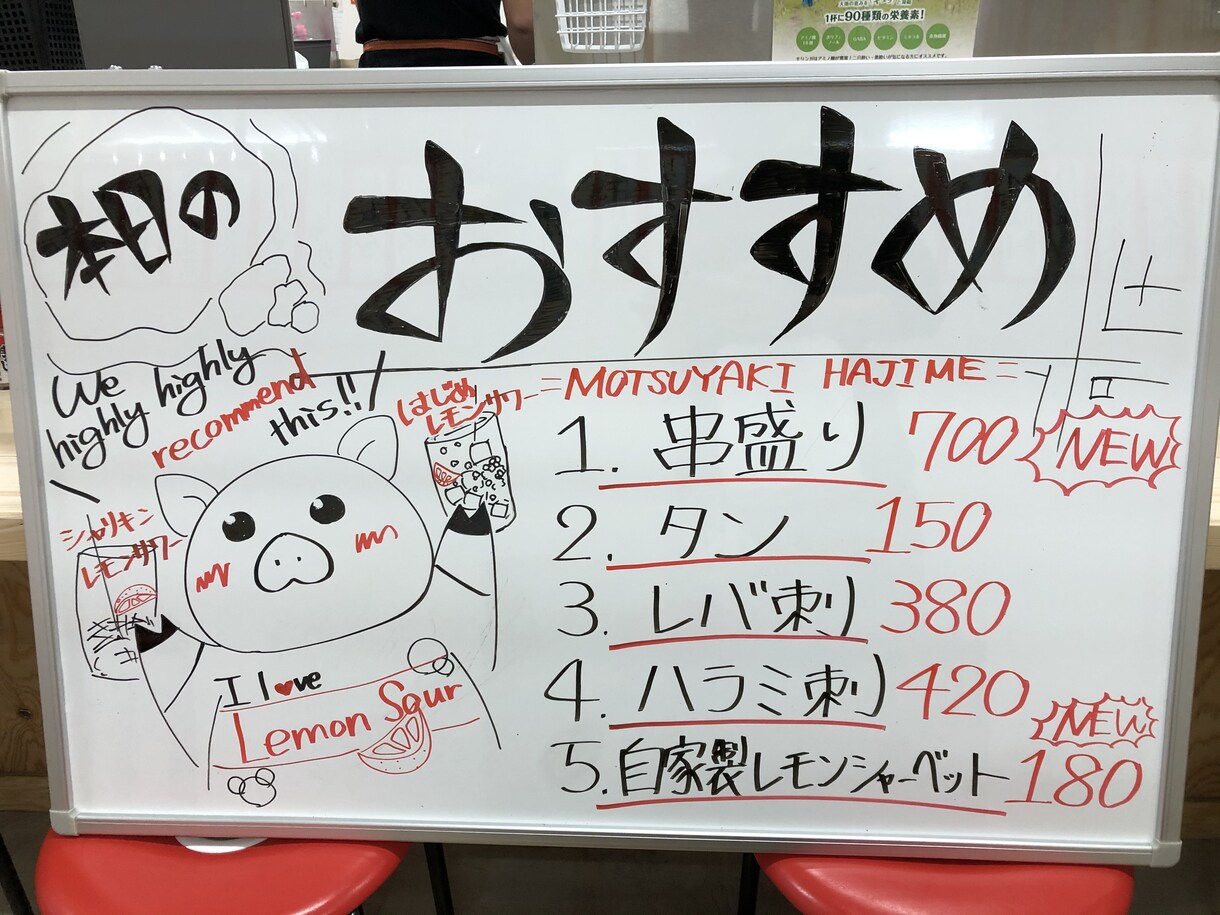 1杯に90種類の栄養素!
本日の
おすすめ
We
highly highly
recommend
this!!
はじめ
レモンサワー
シャリキン
レモンサワー
I l♥ve
Lemon Sour
=MOTSUYAKI HAJIME=
1. 串盛り 700 NEW
2. タン 150
3. レバ刺り 380
4. ハラミ刺り 420
5. 自家製レモンシャーベット 180 NEW